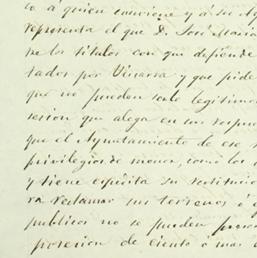 to á quien conviene y á su Ay
representa el que D. José Maria
de los titulos con que defiende
tados por Vinarsa y que pide
que no pueden serle legitimos
sesion que alega en sus respue
que el Ayuntamiento de ese
privilegios de menor, como los
y tiene espedita su restitucio
ra reclamar sus terrenos ó
publicos no se pueden
posesion de ciento ó mas